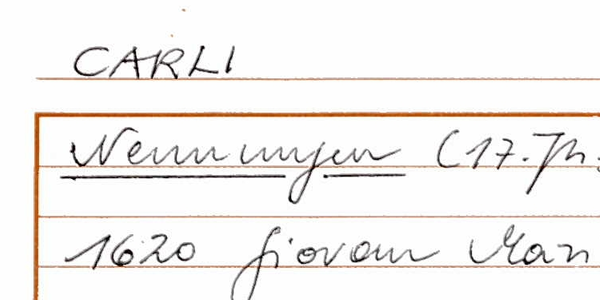 CARLI
Nennungen (17. Jh.
1620 Giovan